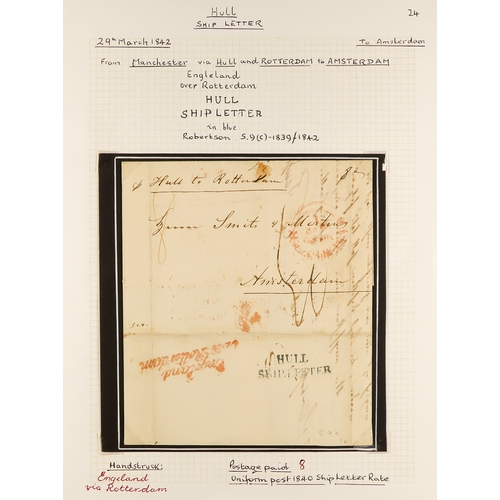 Hull
24
SHIP LETTER
29th March 1842
To Amsterdam
From Manchester via Hull and ROTTERDAM to AMSTERDAM
Engleland
over Rotterdam
HULL
SHIP LETTER
in blue
Robertson S.9(c)-1839/1842
Hull to Rotterdam
Smits &
Amsterdam
Engeland
over Rotterdam
HULL
SHIP LETTER
Handstruck:
Engeland
via Rotterdam
Postage paid 8
Uniform post 1840 Ship Letter Rate